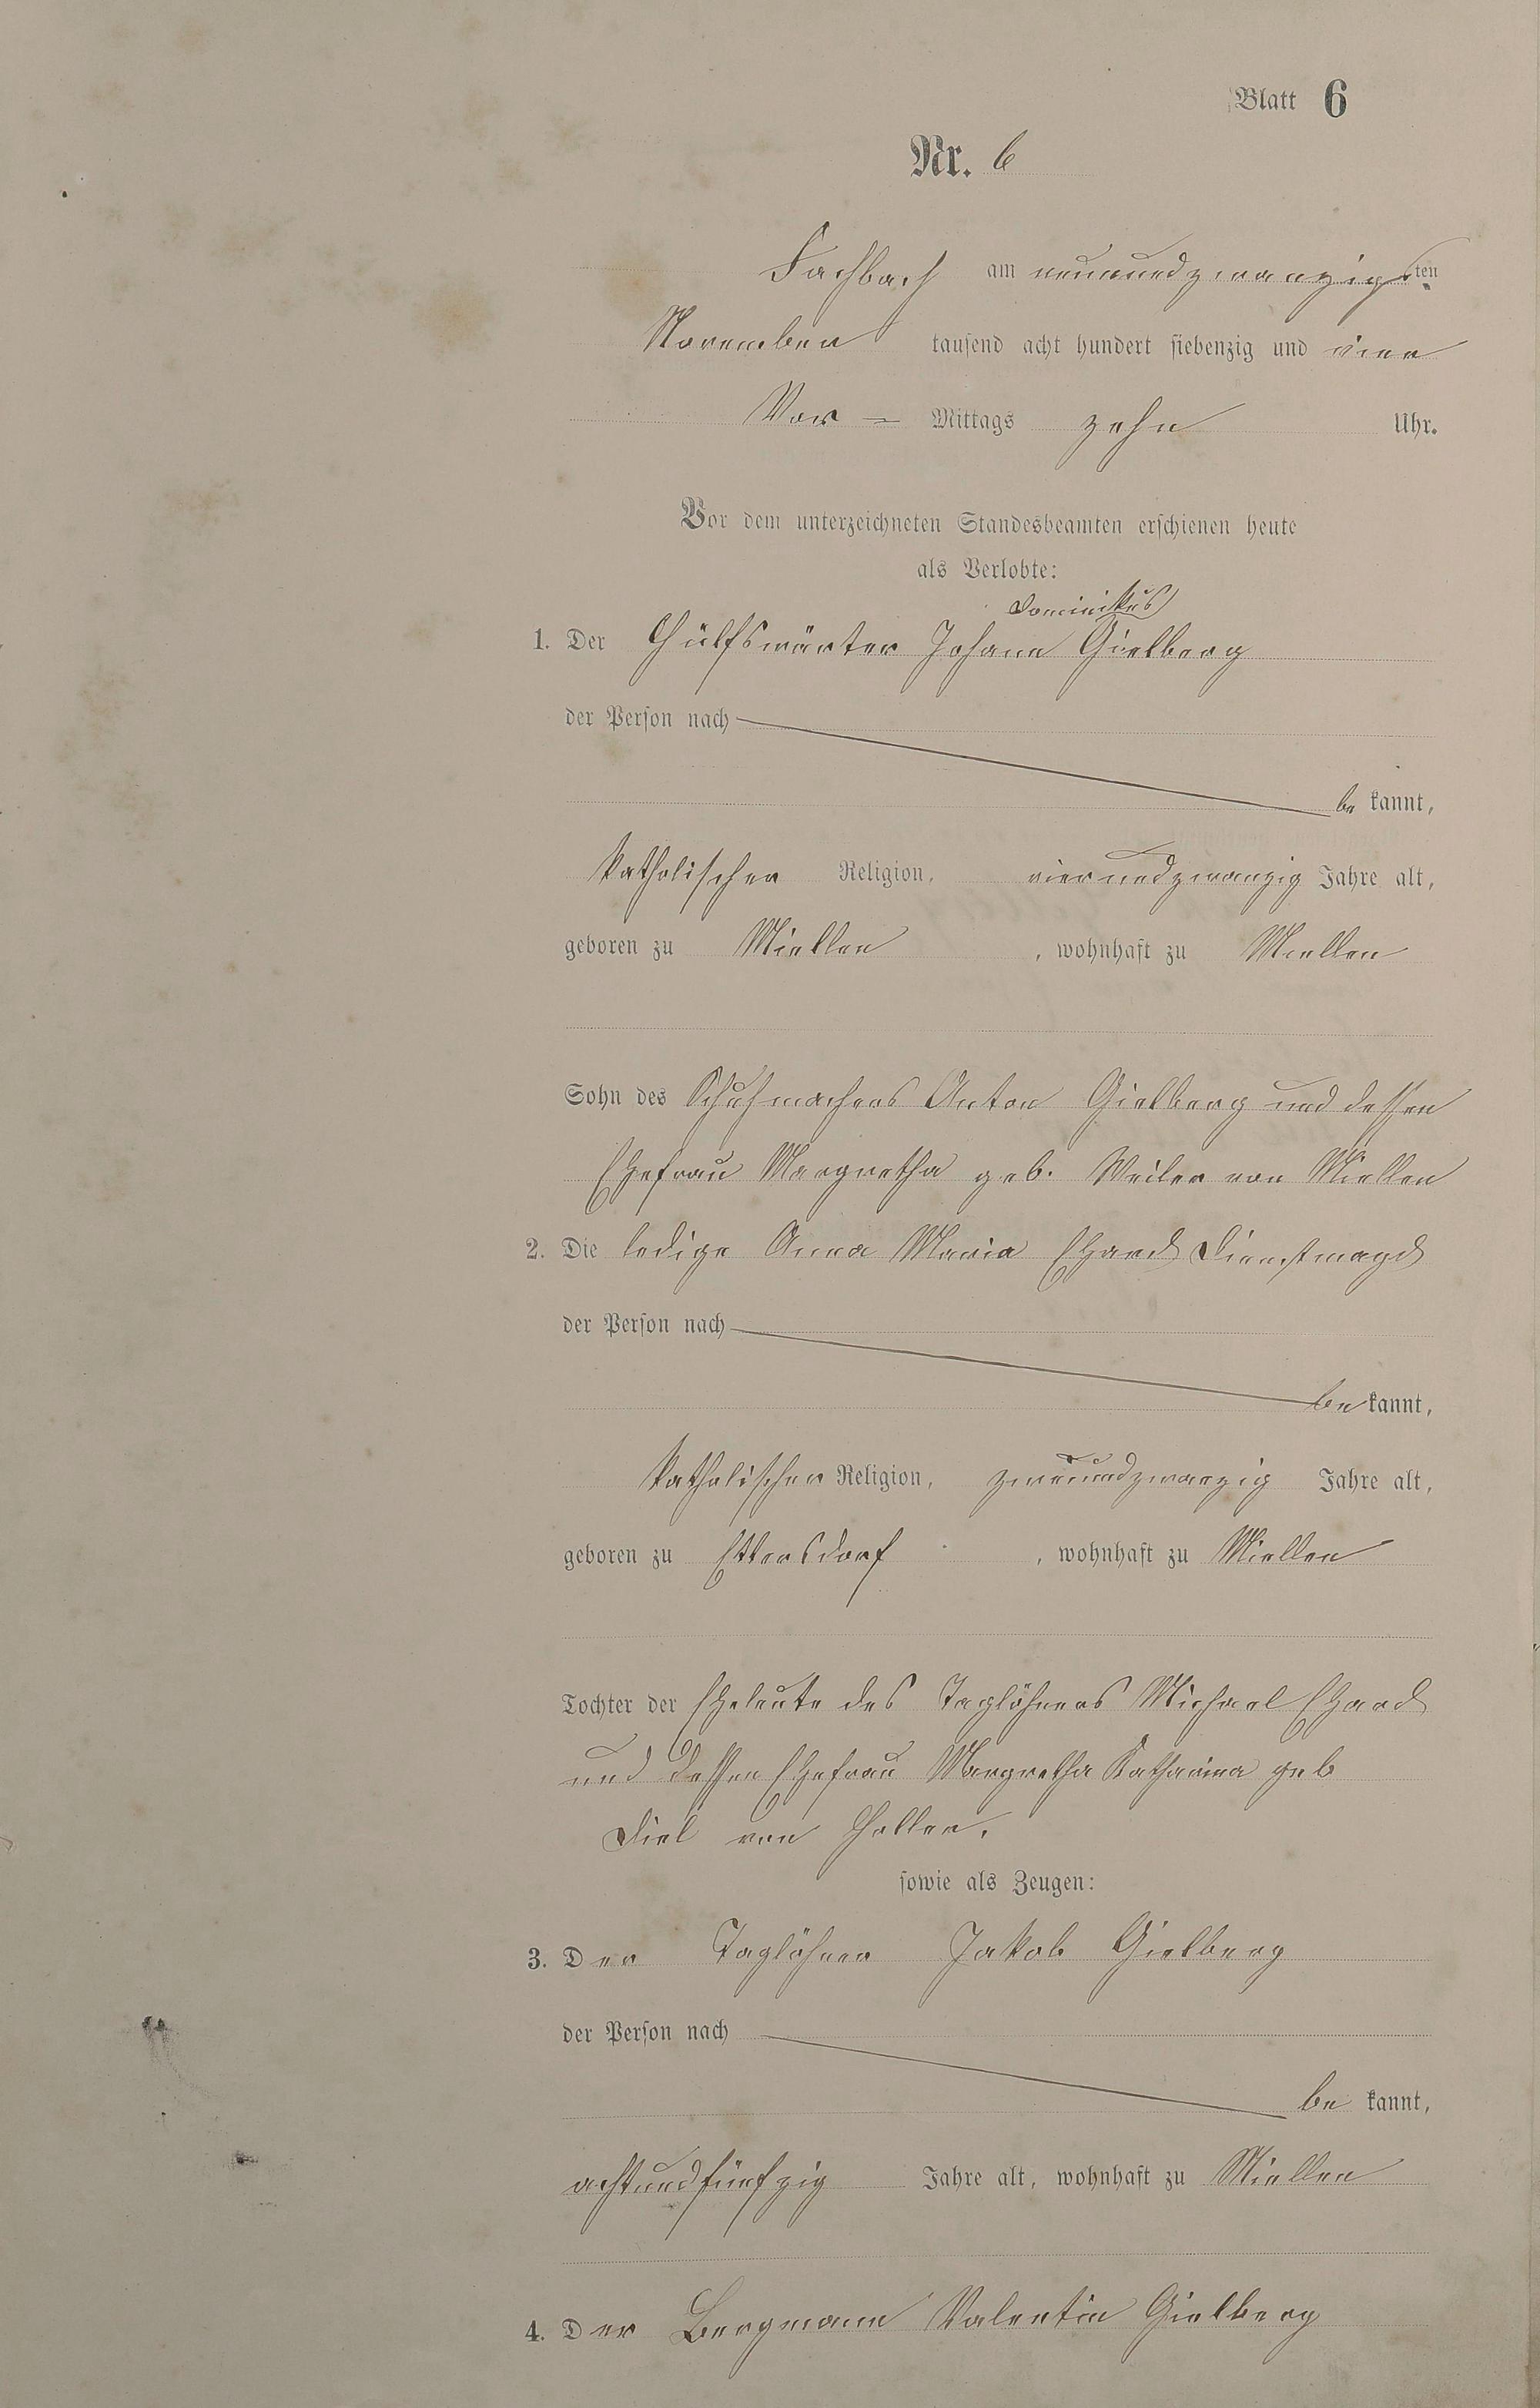 Blatt 6
Nr. 6
Fachbach am neunundzwanzigsten
November tausend acht hundert siebenzig und vier
Vor - Mittags zehn Uhr.
Vor dem unterzeichneten Standesbeamten erschienen heute
als Verlobte:
Dominikus
1. Der Hülfswärter Johann Gielberg
der Person nach
be kannt,
katholischer Religion, vierundzwanzig Jahre alt,
geboren zu Miellen , wohnhaft zu Miellen
Sohn des Schuhmachers Anton Gielberg und dessen
Ehefrau Margretha geb. Weiler von Miellen
2. Die ledige Anna Maria Ehard Dienstmagd
der Person nach
be kannt,
katholischer Religion, zweiundzwanzig Jahre alt,
geboren zu Ettersdorf , wohnhaft zu Miellen
Tochter der Eheleute des Taglöhners Michael Ehard
und dessen Ehefrau Margretha Katharina geb
Diel von Holler.
sowie als Zeugen:
3. Der Taglöhner Jakob Gielberg
der Person nach
be kannt,
achtundfünfzig Jahre alt, wohnhaft zu Miellen
4. Der Bergmann Valentin Gielberg